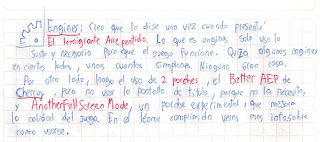 Engines: Creo que lo dise una vez cuando presente
El Inmigrante Arrepentido. Lo que es engines Solo uso lo
Justo y necesario Para que el juego funcione. Quiza algunos engines
en ciertos lados, y unos cuantos simplones. Ninguna Gran cosa.
Por otro lado, hago el uso de 2 parches, el Better AEP de
Cherry, para no usar la pantalla de titulo, porque no la necesito,
y AnotherfullScreen Mode, un parche experimental, que mejora
la calidad del juego. En el leame comprimido veras mas info sobre
como usarse.